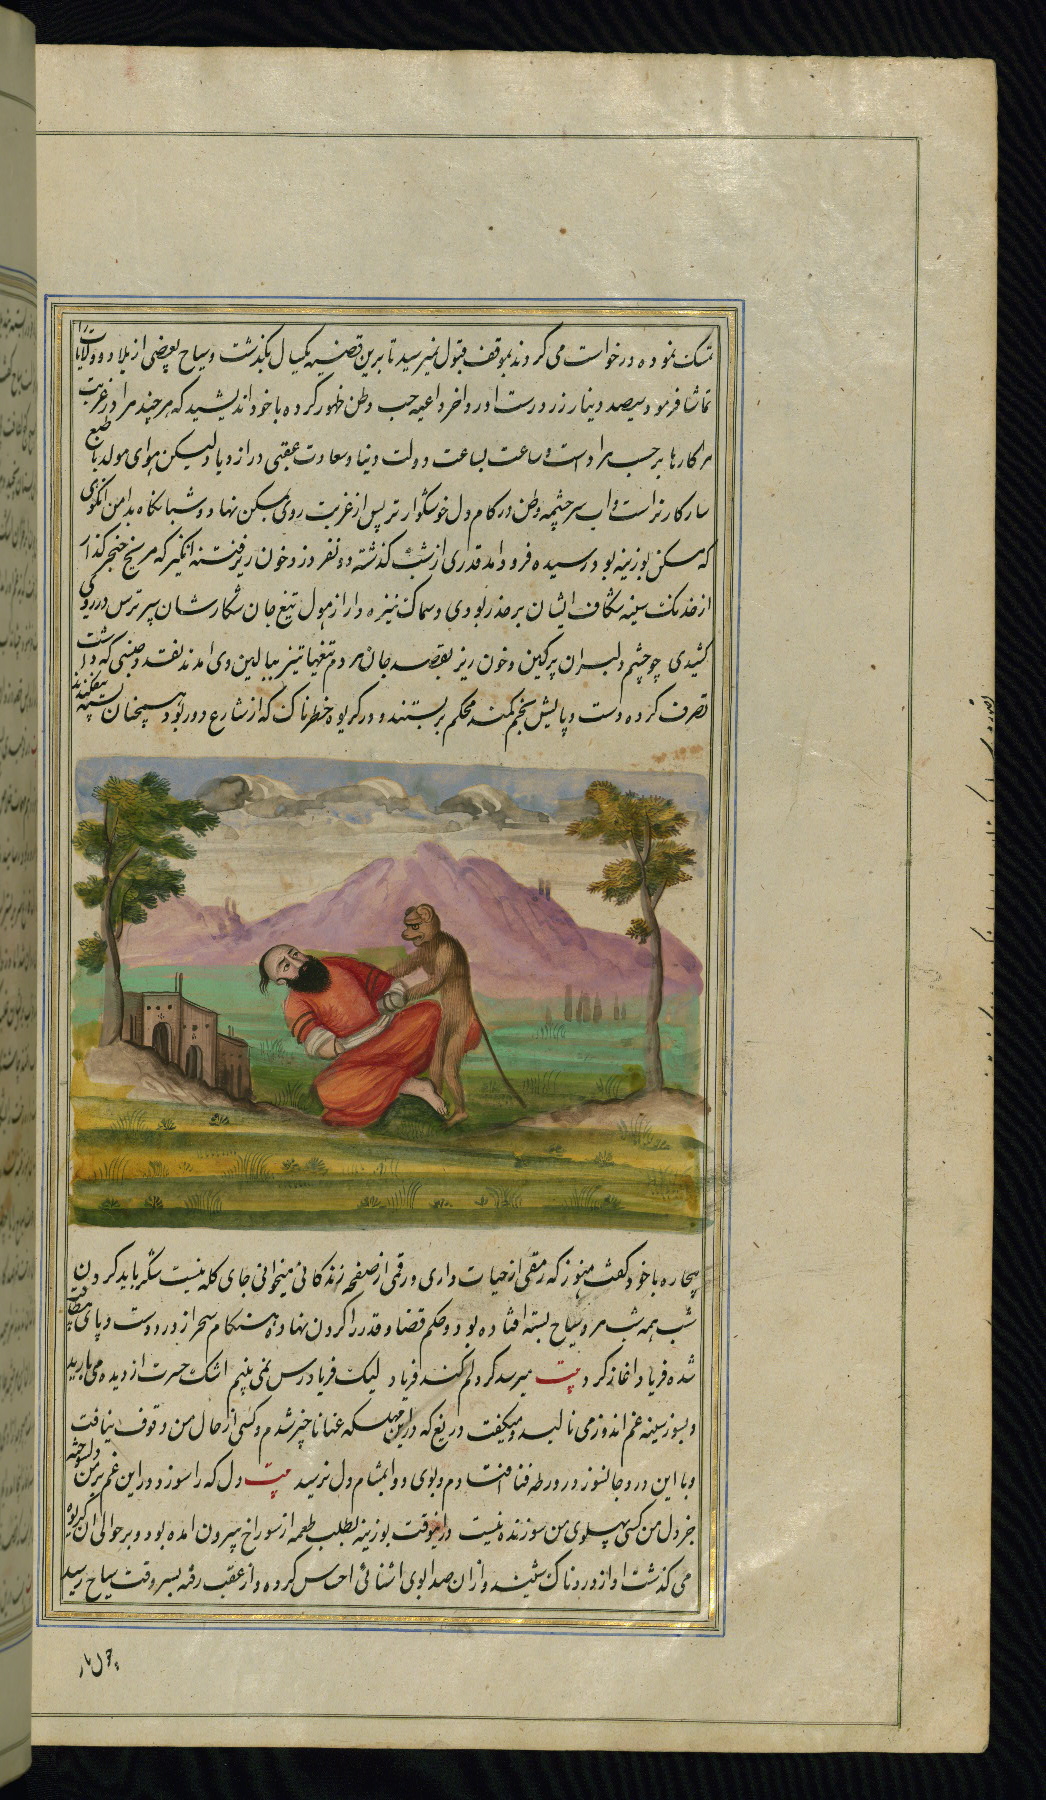 تمسک نموده درخواست می کردند بموقف قبول نمیرسید تا برین قضیه یکسال بگذشت و سیاح بعضی از بلاد و ولایات را
تماشا فرمود سیصد دینار زر درست اورد اخر داعیه حب وطن ظهور کرده با خود اندیشید که هر چند مرا در غربت
کارها بر حسب مراد است و ساعت بساعت دولت دنیا و سعادت عقبی در ازدیاد لیکن هوای مولد با طبع
سازکارتر است و اب سرچشمه وطن در کام دل خوشگوارتر پس از غربت روی بمسکن نهاد و شبانکاه بدامن ان کوی
که مسکن بوزینه بود رسیده فرود امد قدری از شب گذشته دو نفر دزد خون ریز فتنه انگیز که مریخ خنجر گذار
از خدنک سینه شکاف ایشان بر حذر بودی و سماک نیزه دار از هول تیغ جان شکارشان سپر ترس در روی
کشیدی چو چشم دلبران پر کین و خون ریز بقصد جان مردم تیغها تیز ببالین وی امدند نقد و جنسی که داشت
تصرف کرده دست و پایش بخم کمند محکم بربستند و در کریوه خطرناک که از شارع دور بود همچنان بسته بیفکندند
بیچاره با خود گفت هنوز که رمقی از حیات داری و رقمی از صفحه زندکانی میخوانی جای کله نیست شکر باید کردن
شب همه شب مرد سیاح بسته افتاده بود و حکم قضا و قدر را کردن نهاده هنکام سحر از درد دست و پای بیطاقت
شده فریاد اغاز کرد بیت میرسد کردلم کند فریاد لیک فریادرس نمی بینم اشک حسرت از دیده می بارید
و بسوز سینه غم اندوز می نالید و میکفت دریغ که در این مهلکه عنا ناچیز شدم و کسی از حال من وقوف نیافت
و با این درد جانسوز در ورطه فنا افتادم و بوی دوا بمشام دل نرسید بیت دل که را سوزد در این غم بر من دلسوخته
جز دل من کسی پهلوی من سوزنده نیست در اینوقت بوزینه بطلب طعمه از سوراخ بیرون امده بود و بر حوالی ان کریوه
می کذشت اواز دردناک شنید و از ان صدا بوی اشنائی احساس کرده و از عقب رفته بسر وقت سیاح رسید
چون یار